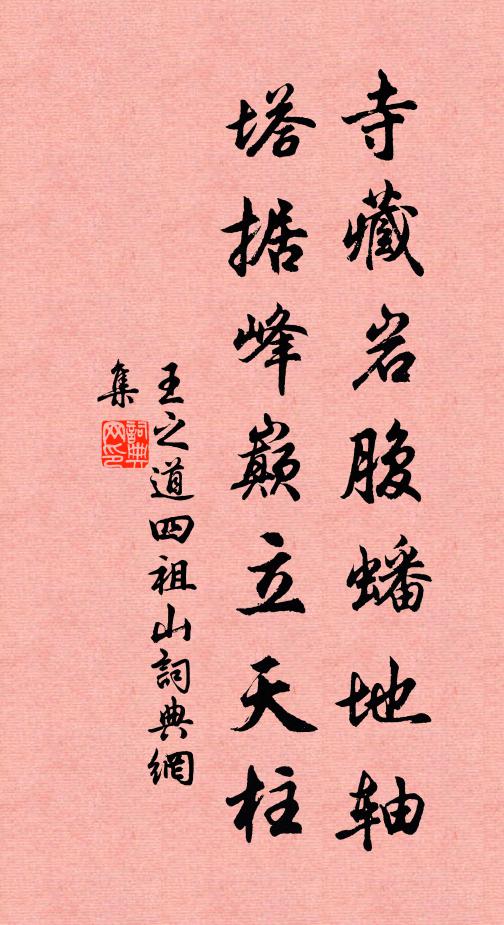 寺藏岩腹蟠地轴
塔据峰巅立天柱
王之道四祖山詞典網
集
詞典网印